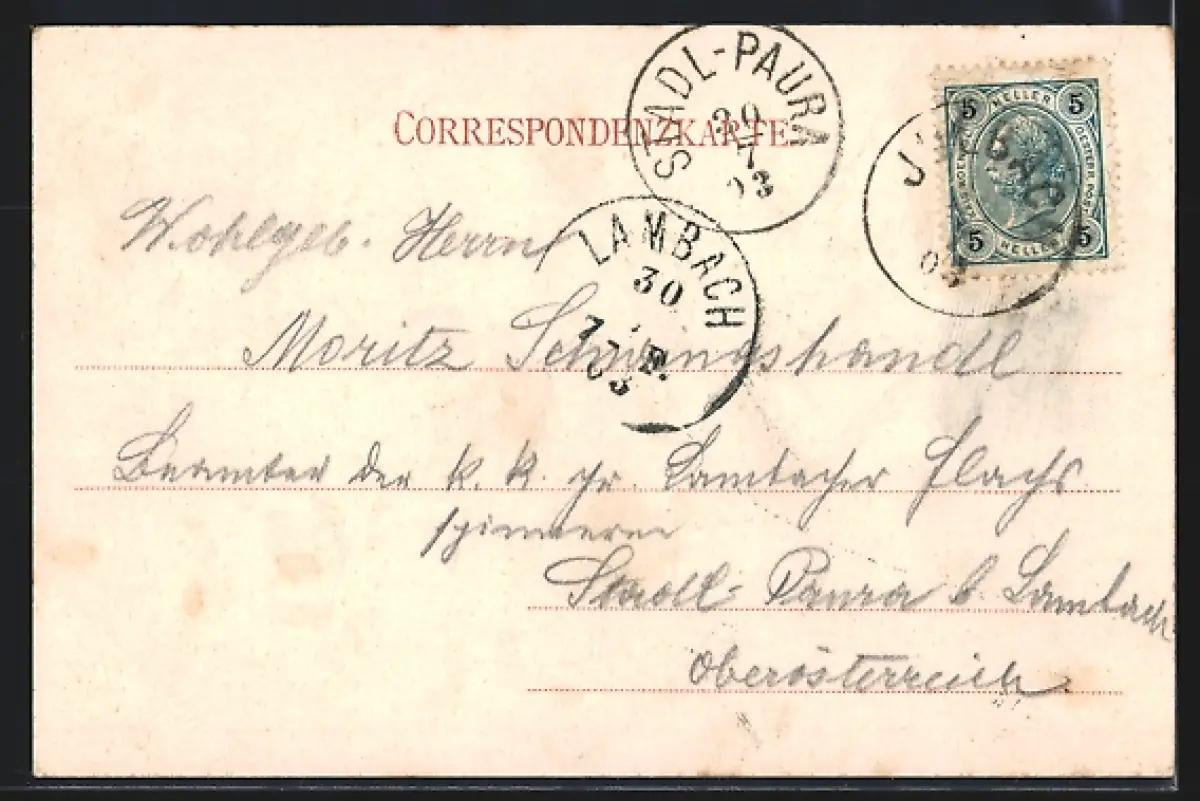 STADL-PAURA
30
7
03
CORRESPONDENZKARTE
5 HELLER 5
5 HELLER 5
03
LAMBACH
30
7
03
Wohlgeb. Herrn
Moritz Schwingshandl
Beamter der k. k. pr. Lambacher Flachs
spinnerei
Stadl-Paura b. Lambach
Oberösterreich